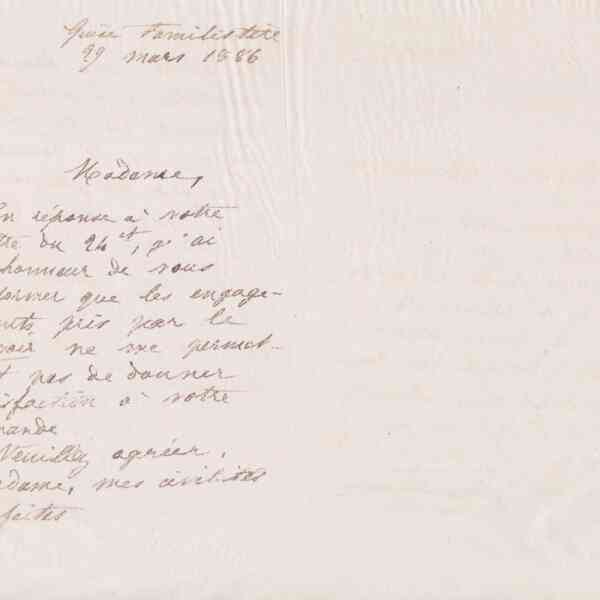 Guise Familistère
29 mars 1886
Madame,
En réponse à votre
ttre du 24 ct, j'ai
honneur de vous
former que les engage-
ents pris par le
ne me permet-
t pas de donner
isfaction à votre
mande
Veuillez agréer,
adame, mes civilités
faites